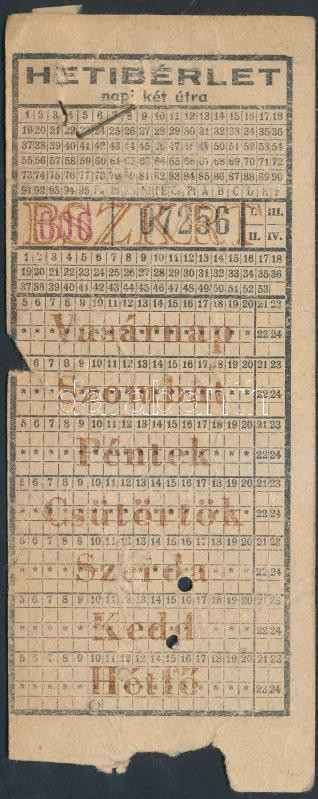 HETIBÉRLET
napi két útra
1 2 3 4 5 6 7 8 9 10 11 12 13 14 15 16 17 18
19 20 21 22 23 24 25 26 27 28 29 30 31 32 33 34 35 36
37 38 39 40 41 42 43 44 45 46 47 48 49 50 51 52 53 54
55 56 57 58 59 60 61 62 63 64 65 66 67 68 69 70 71 72
73 74 75 76 77 78 79 80 81 82 83 84 85 86 87 88 89 90
91 92 93 94 95 96 A B C D E F
BSZKRT
07256
I. III.
II. IV.
1 2 3 4 5 6 7 8 9 10 11 12 13 14 15 16 17 18
19 20 21 22 23 24 25 26 27 28 29 30 31 32 33 34 35 36
37 38 39 40 41 42 43 44 45 46 47 48 49 50 51 52 53
5 6 7 8 9 10 11 12 13 14 15 16 17 18 19 20 21 23
Vasárnap
22 24
6 7 8 9 10 11 12 13 14 15 16 17 18 19 20 21 23
Szombat
22 24
5 6 7 8 9 10 11 12 13 14 15 16 17 18 19 20 21 23
Péntek
22 24
5 6 7 8 9 10 11 12 13 14 15 16 17 18 19 20 21 23
Csütörtök
22 24
5 6 7 8 9 10 11 12 13 14 15 16 17 18 19 20 21 23
Szerda
22 24
5 6 7 8 9 10 11 12 13 14 15 16 17 18 19 20 21 23
Kedd
22 24
5 6 7 8 9 10 11 12 13 14 15 16 17 18 19 20 21 23
Hétfő
22 24
darabanth